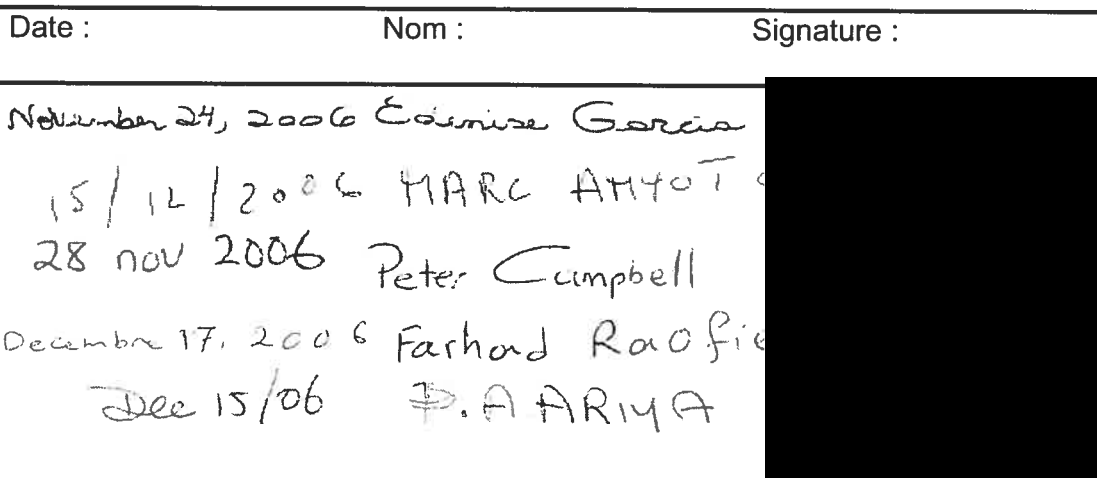 Date : Nom : Signature :
November 24, 2006 Edenise Garcia
15/12/2006 MARC AMYOT
28 nov 2006 Peter Campbell
Decembre 17, 2006 Farhad Raofie
Dec 15/06 P.A ARIYA